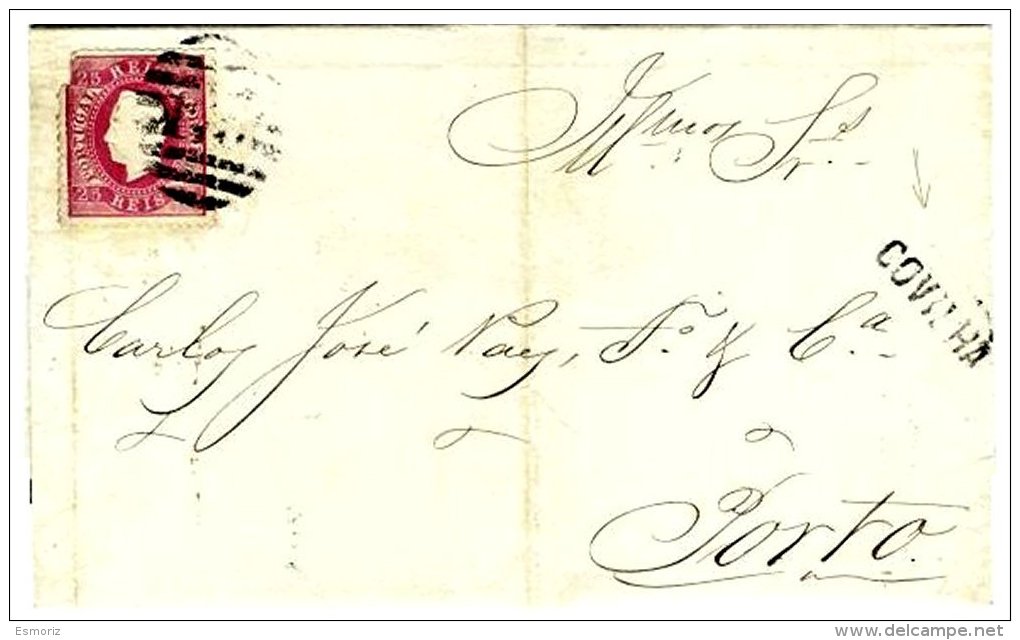 25 REIS
PORTUGAL
CONTINENTE
25 REIS
Illmos Srs
COVILHÃ
Carlos José Vaz, Fo. & Ca.
Porto.
Esmoriz
www.delcampe.net